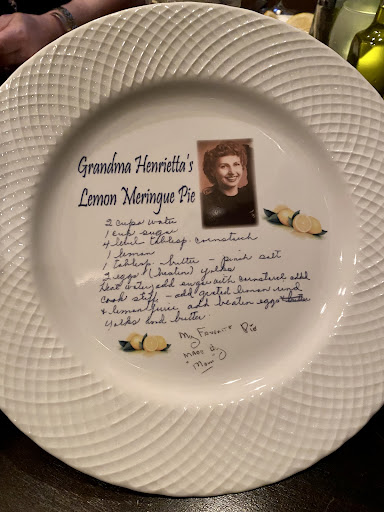 Grandma Henrietta's
Lemon Meringue Pie
2 cups water
1 cup sugar
4 level tablesp. cornstarch
1 lemon
1 tablesp butter - pinch salt
2 eggs (beaten) yolks
Heat water, add sugar with cornstarch added
Cook stiff - add grated lemon rind
& lemon juice, add beaten eggs
yolks and butter.
My Favorite Pie
made by
"Mom"